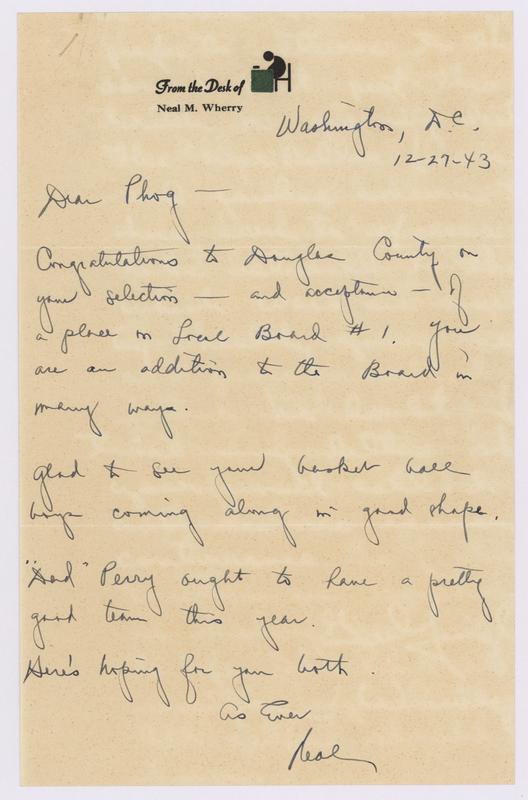 From the Desk of
Neal M. Wherry
Washington, D.C.
12-27-43
Dear Phog —
Congratulations to Douglas County on
your selection — and acceptance — of
a place on Local Board #1. You
are an addition to the Board in
many ways.
Glad to see your basket ball
boys coming along in good shape.
"Dad" Perry ought to have a pretty
good team this year.
Here's hoping for you both.
As Ever
Neal